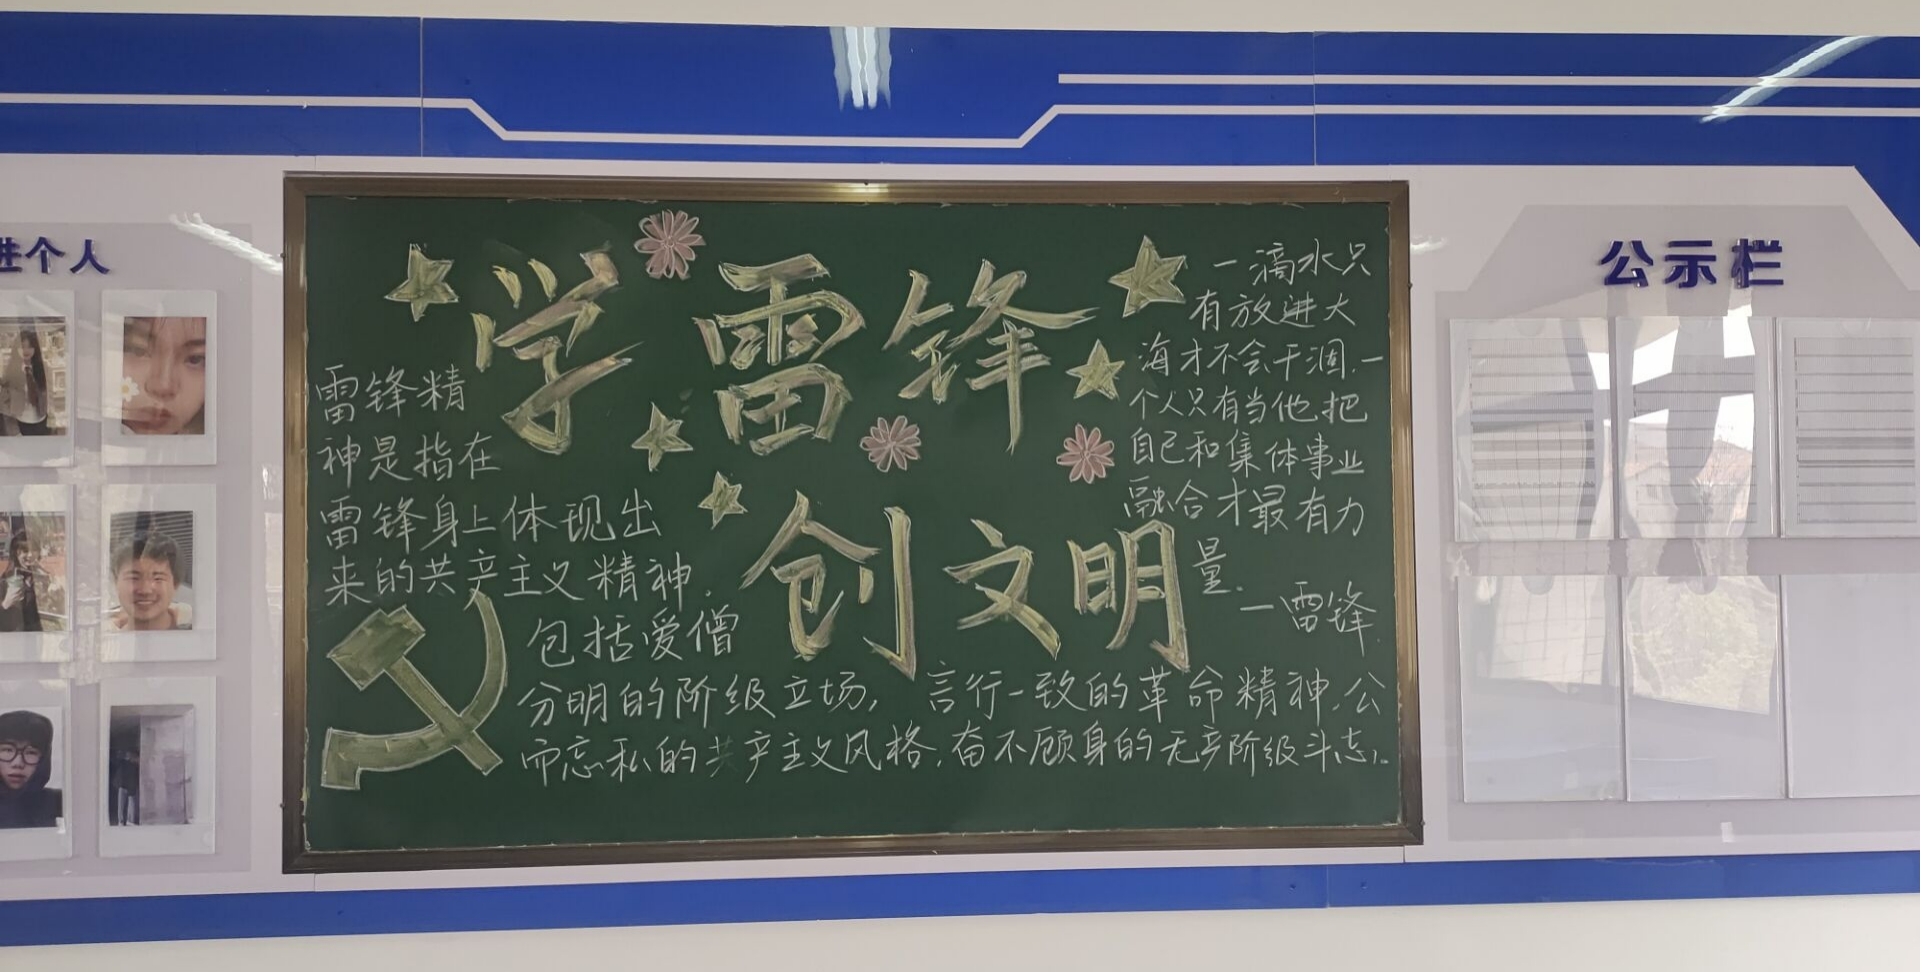 进个人
学雷锋
创文明
雷锋精
神是指在
雷锋身上体现出
来的共产主义精神.
包括爱僧
分明的阶级立场, 言行一致的革命精神.公
而忘私的共产主义风格,奋不顾身的无产阶级斗志,.
一滴水只
有放进大
海才不会干涸.一
个人只有当他把
自己和集体事业
融合才最有力
量.
一雷锋.
公示栏